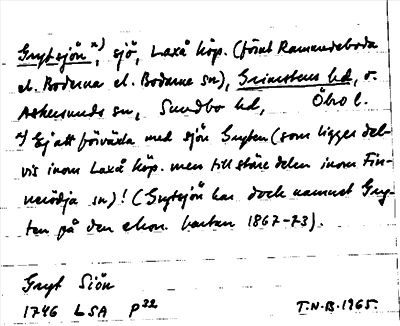 Grytsjön x), sjö, Laxå köp. (förut Ramundeboda
el. Boderna el. Bodarne sn), Grimstens hd, o.
Askersunds sn, Sundbo hd, Öbro l.
x) Ej att förväxla med sjön Gryten (som ligger del-
vis inom Laxå köp. men till större delen inom Fin-
nerödja sn)! (Grytsjön har dock namnet Gry-
ten på den ekon. kartan 1867-73).
Gryt Siön
1746 LSA P22
T.N.B. 1965.